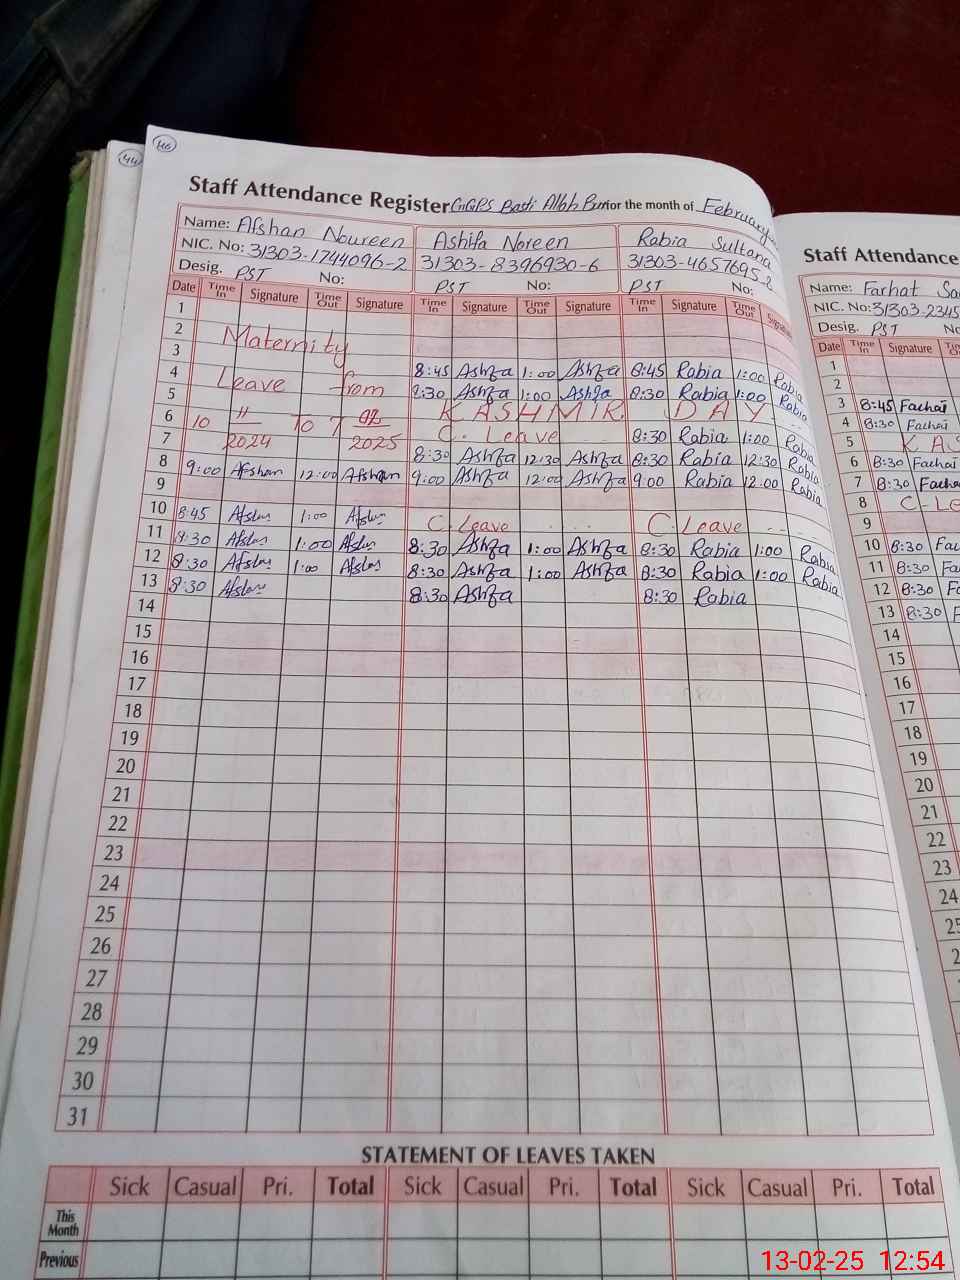 44
46
Staff Attendance Register GGPS Basti Allah Bux for the month of February
Name: Afshan Noureen Ashifa Noreen Rabia Sultana
NIC. No: 31303-1744096-2 31303-8396930-6 31303-4657695-2
Desig. PST No: PST No: PST No:
Date Time In Signature Time Out Signature Time In Signature Time Out Signature Time In Signature Time Out Signature
1
2 Maternity
3
4 Leave from 8:45 Ashfa 1:00 Ashfa 8:45 Rabia 1:00 Rabia
5 8:30 Ashfa 1:00 Ashfa 8:30 Rabia 1:00 Rabia
6 10 11 2024 To 7 02 2025 KASHMIR DAY
7 C. Leave 8:30 Rabia 1:00 Rabia
8:30 Ashfa 12:30 Ashfa 8:30 Rabia 12:30 Rabia
8 9:00 Afshan 12:00 Afshan 9:00 Ashfa 12:00 Ashfa 9:00 Rabia 12:00 Rabia
9
10 8:45 Afshan 1:00 Afshan C. Leave C. Leave
11 8:30 Afshan 1:00 Afshan 8:30 Ashfa 1:00 Ashfa 8:30 Rabia 1:00 Rabia
12 8:30 Afshan 1:00 Afshan 8:30 Ashfa 1:00 Ashfa 8:30 Rabia 1:00 Rabia
13 8:30 Afshan 8:30 Ashfa 8:30 Rabia
14
15
16
17
18
19
20
21
22
23
24
25
26
27
28
29
30
31
STATEMENT OF LEAVES TAKEN
Sick Casual Pri. Total Sick Casual Pri. Total Sick Casual Pri. Total
This Month
Previous
Staff Attendance
Name: Farhat
NIC. No: 31303-2345
Desig. PST No
Date Time In Signature
1
2
3 8:45 Fachat
4 8:30 Fachat
5 KAS
6 8:30 Fachat
7 8:30 Fachat
8 C-Le
9
10 8:30
11 8:30
12 8:30
13 8:30
14
15
16
17
18
19
20
21
22
23
24
13-02-25 12:54